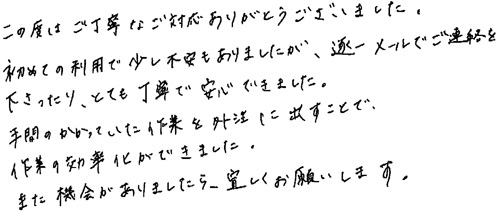 この度はご丁寧なご対応ありがとうございました。
初めての利用で少し不安もありましたが、逐一メールでご連絡を
下さったり、とても丁寧で安心できました。
手間のかかっていた作業を外注に出すことで、
作業の効率化ができました。
また機会がありましたら、宜しくお願いします。